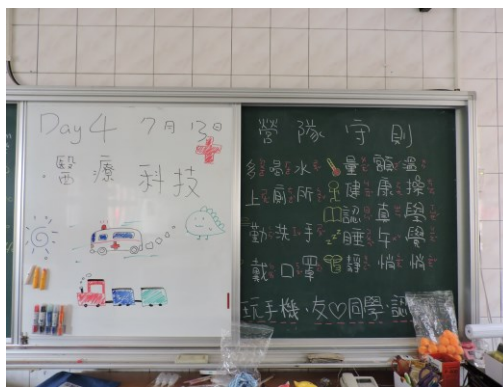 Day 4 7月13日
醫療科技
營隊守則
多喝水 量額溫
上廁所 健康操
認真學
勤洗手 睡午覺
戴口罩 靜悄悄
玩手機、友♡同學、認